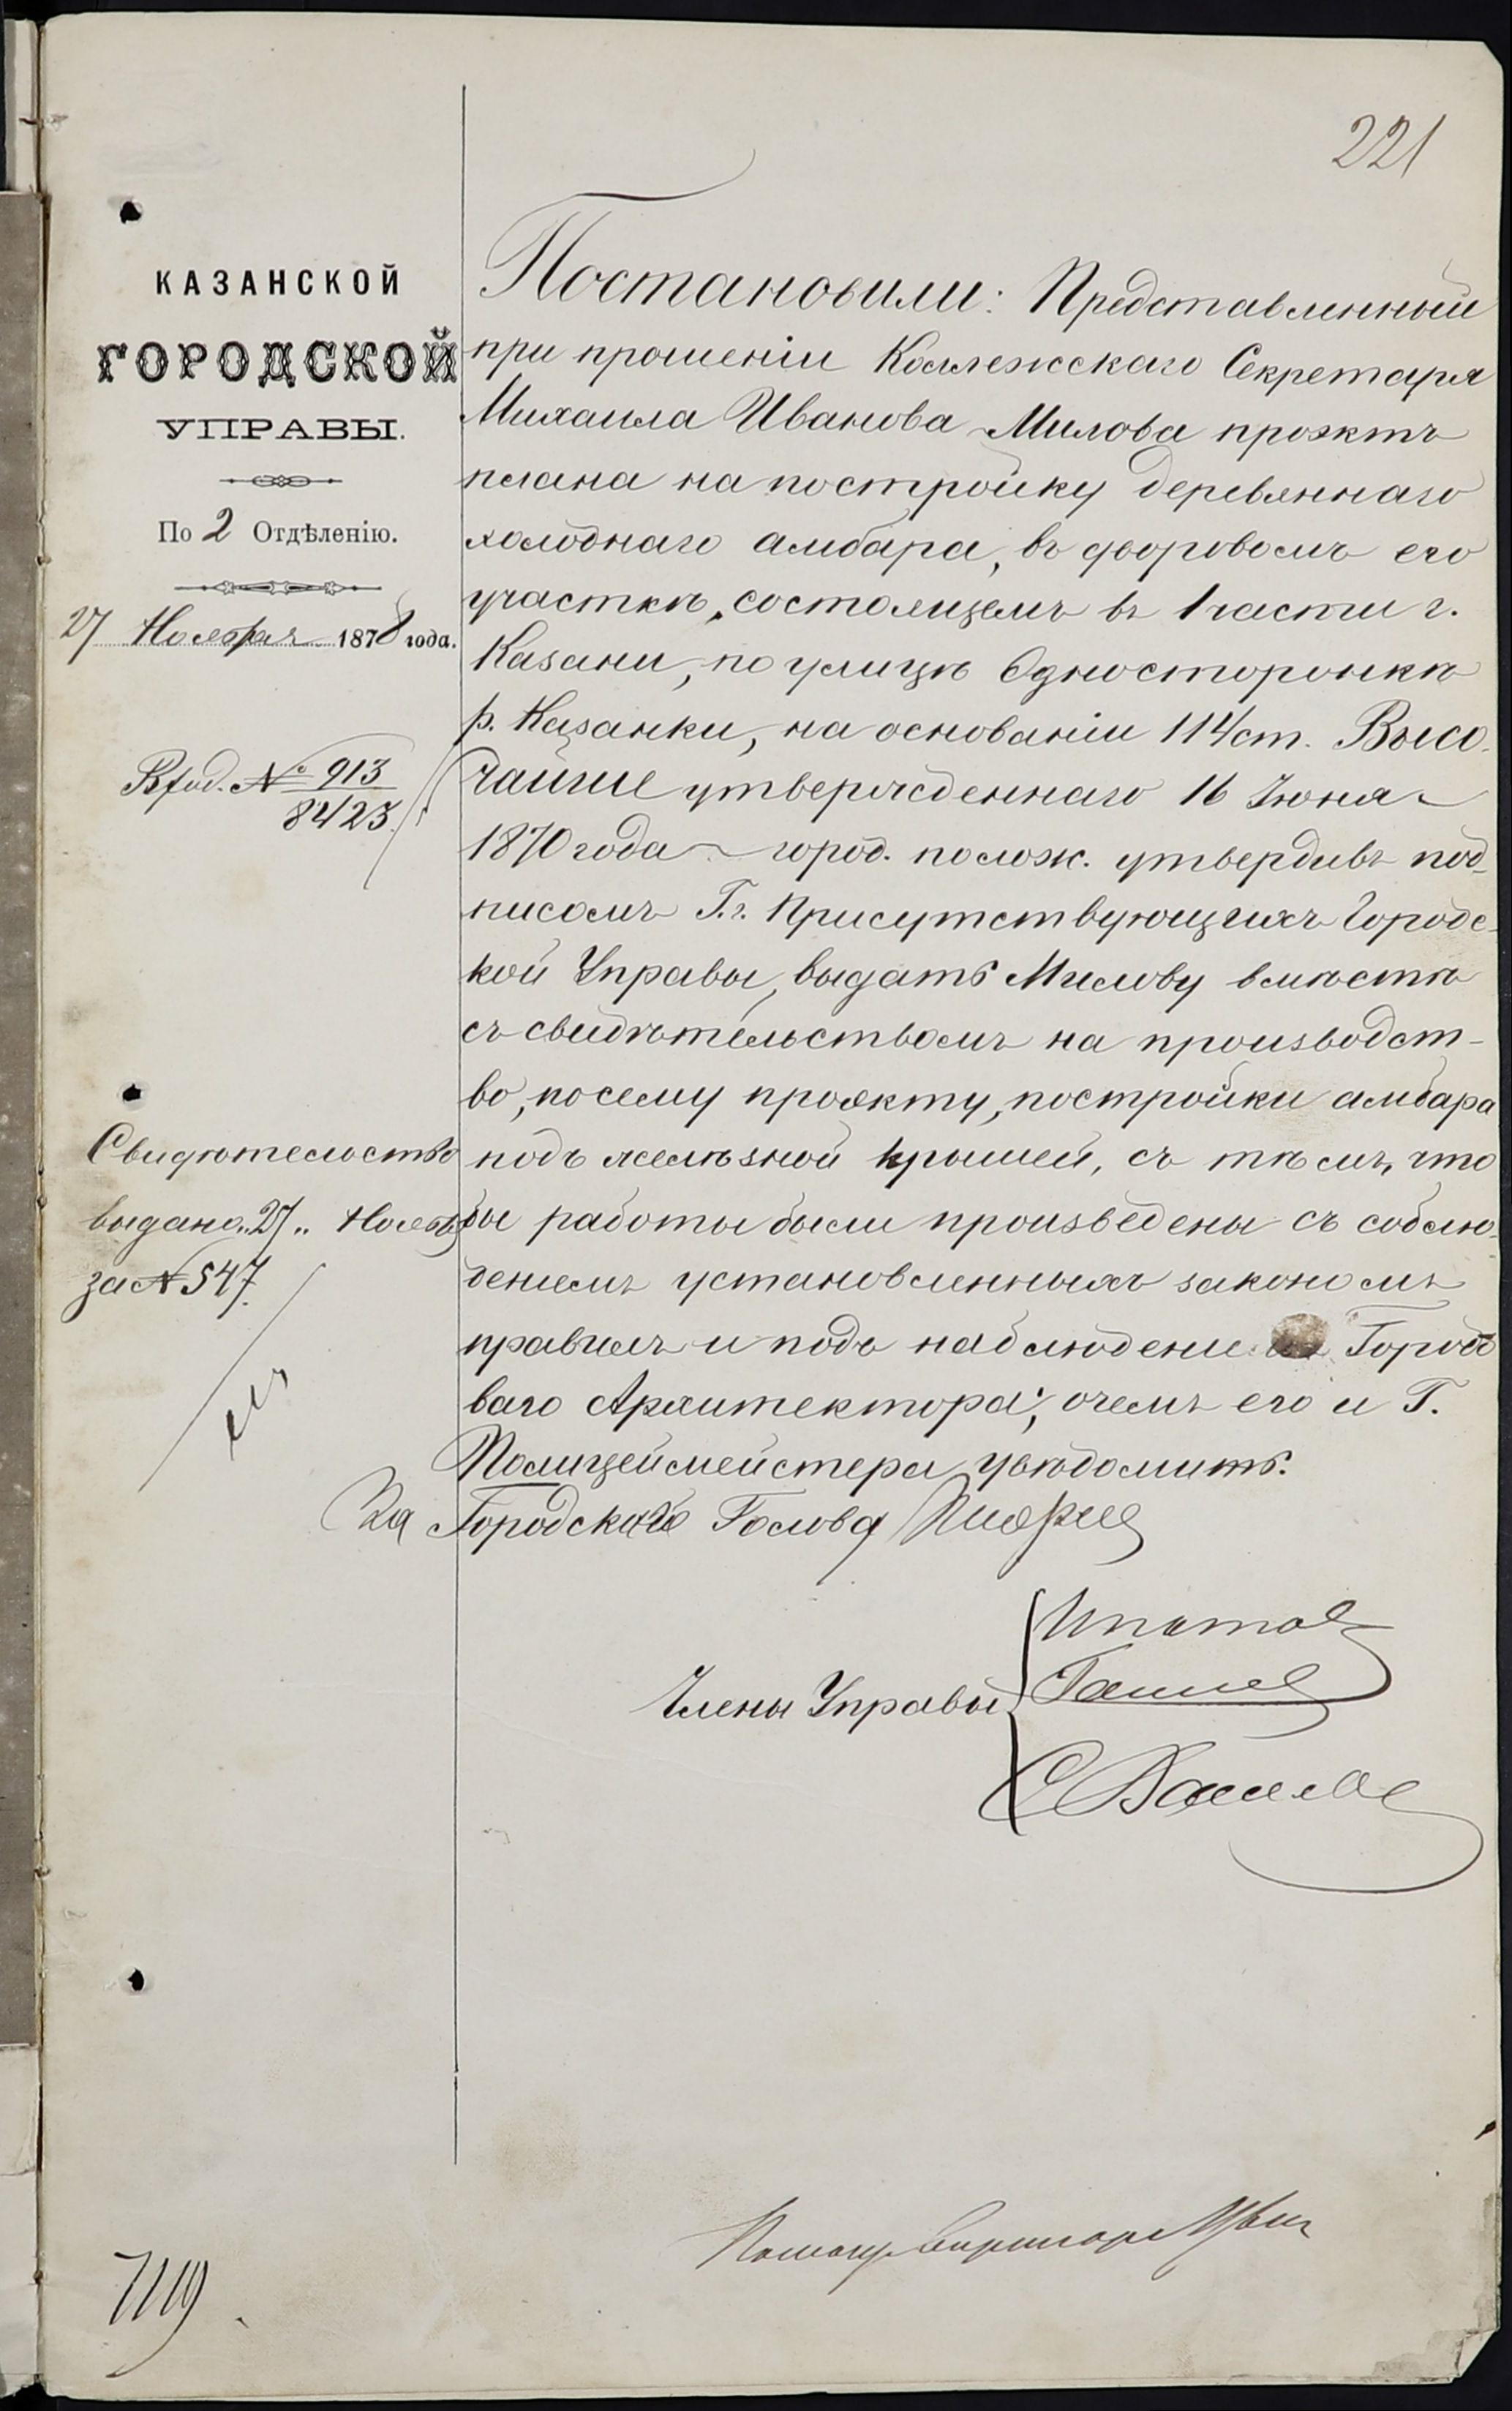 221
КАЗАНСКОЙ
ГОРОДСКОЙ
УПРАВЫ.
По 2 Отдѣленію.
27 Ноября 1878 года.
Вход. № 913
8423.
Свидѣтельство
выдано „27„ Нояб
за № 547.
Постановили: Представленный
при прошеніи Коллежскаго Секретаря
Михаила Иванова Милова проэктъ
плана на постройку деревяннаго
холоднаго амбара, въ дворовомъ его
участкѣ, состоящемъ въ 1 части г.
Казани, по улицѣ Односторонкѣ
р. Казанки, на основаніи 114 ст. Высо-
чайше утвержденнаго 16 Іюня
1870 года город. полож. утвердивъ под-
писомъ Г.г. Присутствующихъ Городс-
кой Управы, выдать Милову вмѣстѣ
съ свидѣтельствомъ на производст-
во, по сему проэкту, постройки амбара
подъ желѣзной крышей, съ тѣмъ, что
бы работы были произведены съ соблю-
деніемъ установленныхъ закономъ
правилъ и подъ наблюдение Городо
ваго Архитектора, о чемъ его и Г.
Полицеймейстера увѣдомить.
За Городскаго Голова
Члены Управы
Ипатов
7119.